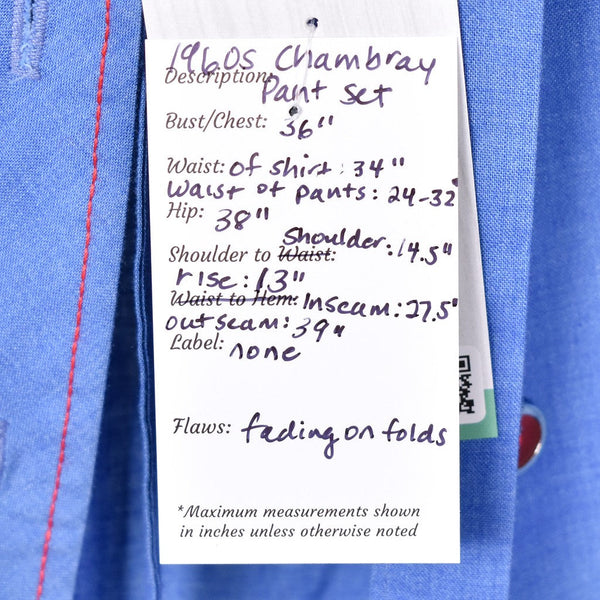 1960s Chambray
Description:
Pant Set
Bust/Chest: 36"
Waist: of shirt: 34"
Waist of pants: 24-32"
Hip: 38"
Shoulder:14.5"
Shoulder to Waist:
rise: 13"
Waist to Hem: Inseam: 27.5"
outseam: 39"
Label: none
Flaws: fading on folds
*Maximum measurements shown
in inches unless otherwise noted